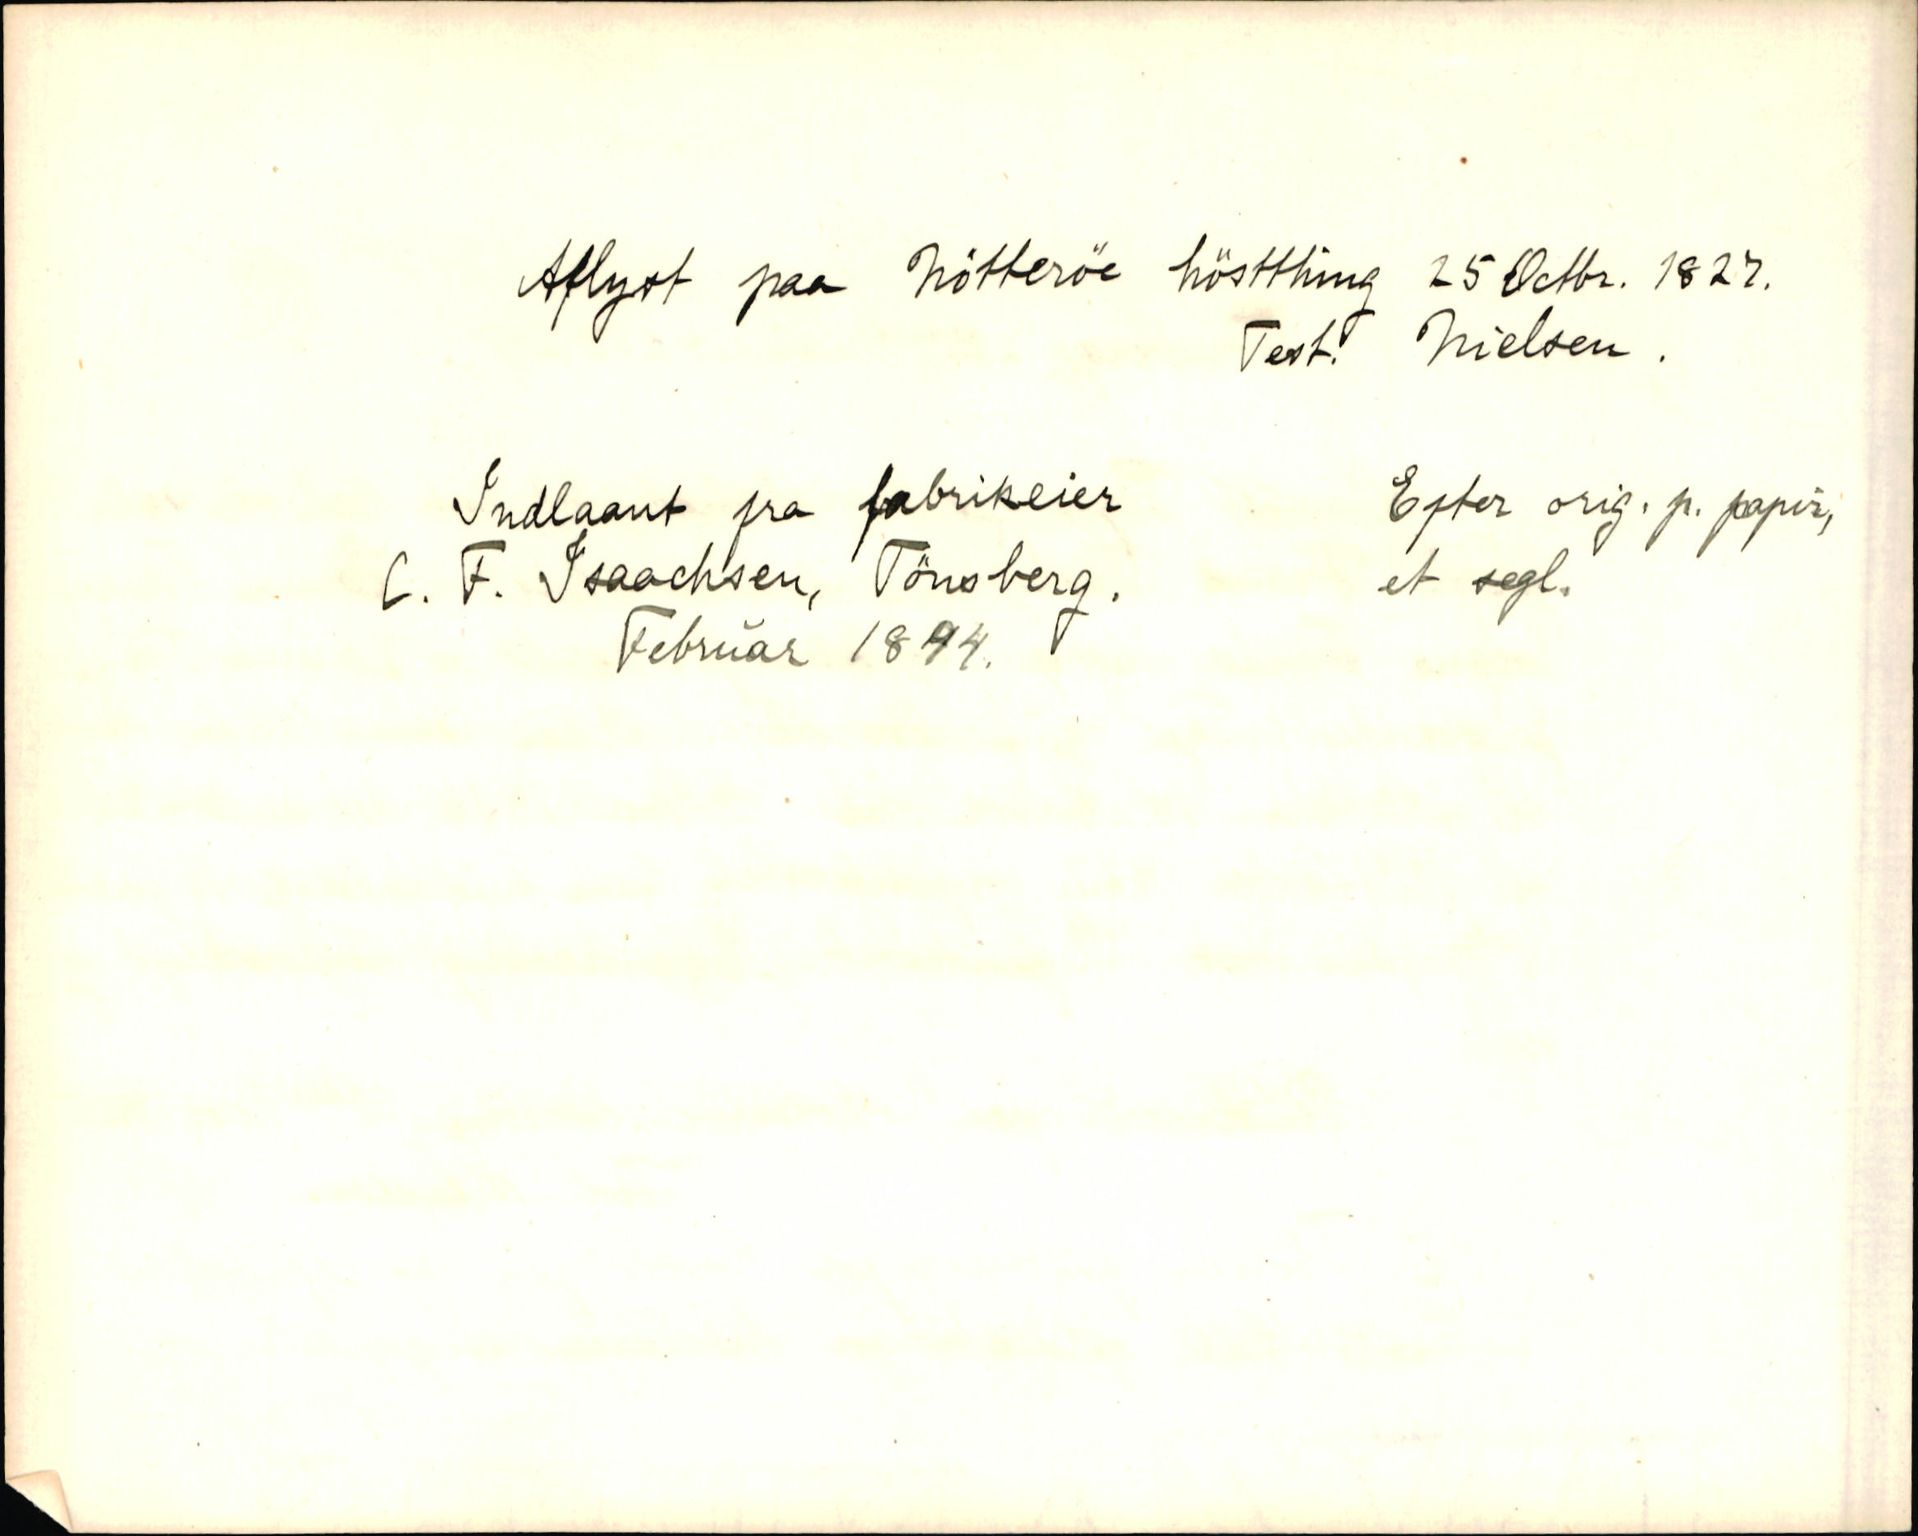 Aflyst paa Nötteröe höstthing 25 Octbr. 1827.
Test. Nielsen.
Indlaant fra fabrikeier
C. F. Isaachsen, Tönsberg.
Februar 1894.
Efter orig. p. papir,
et segl.